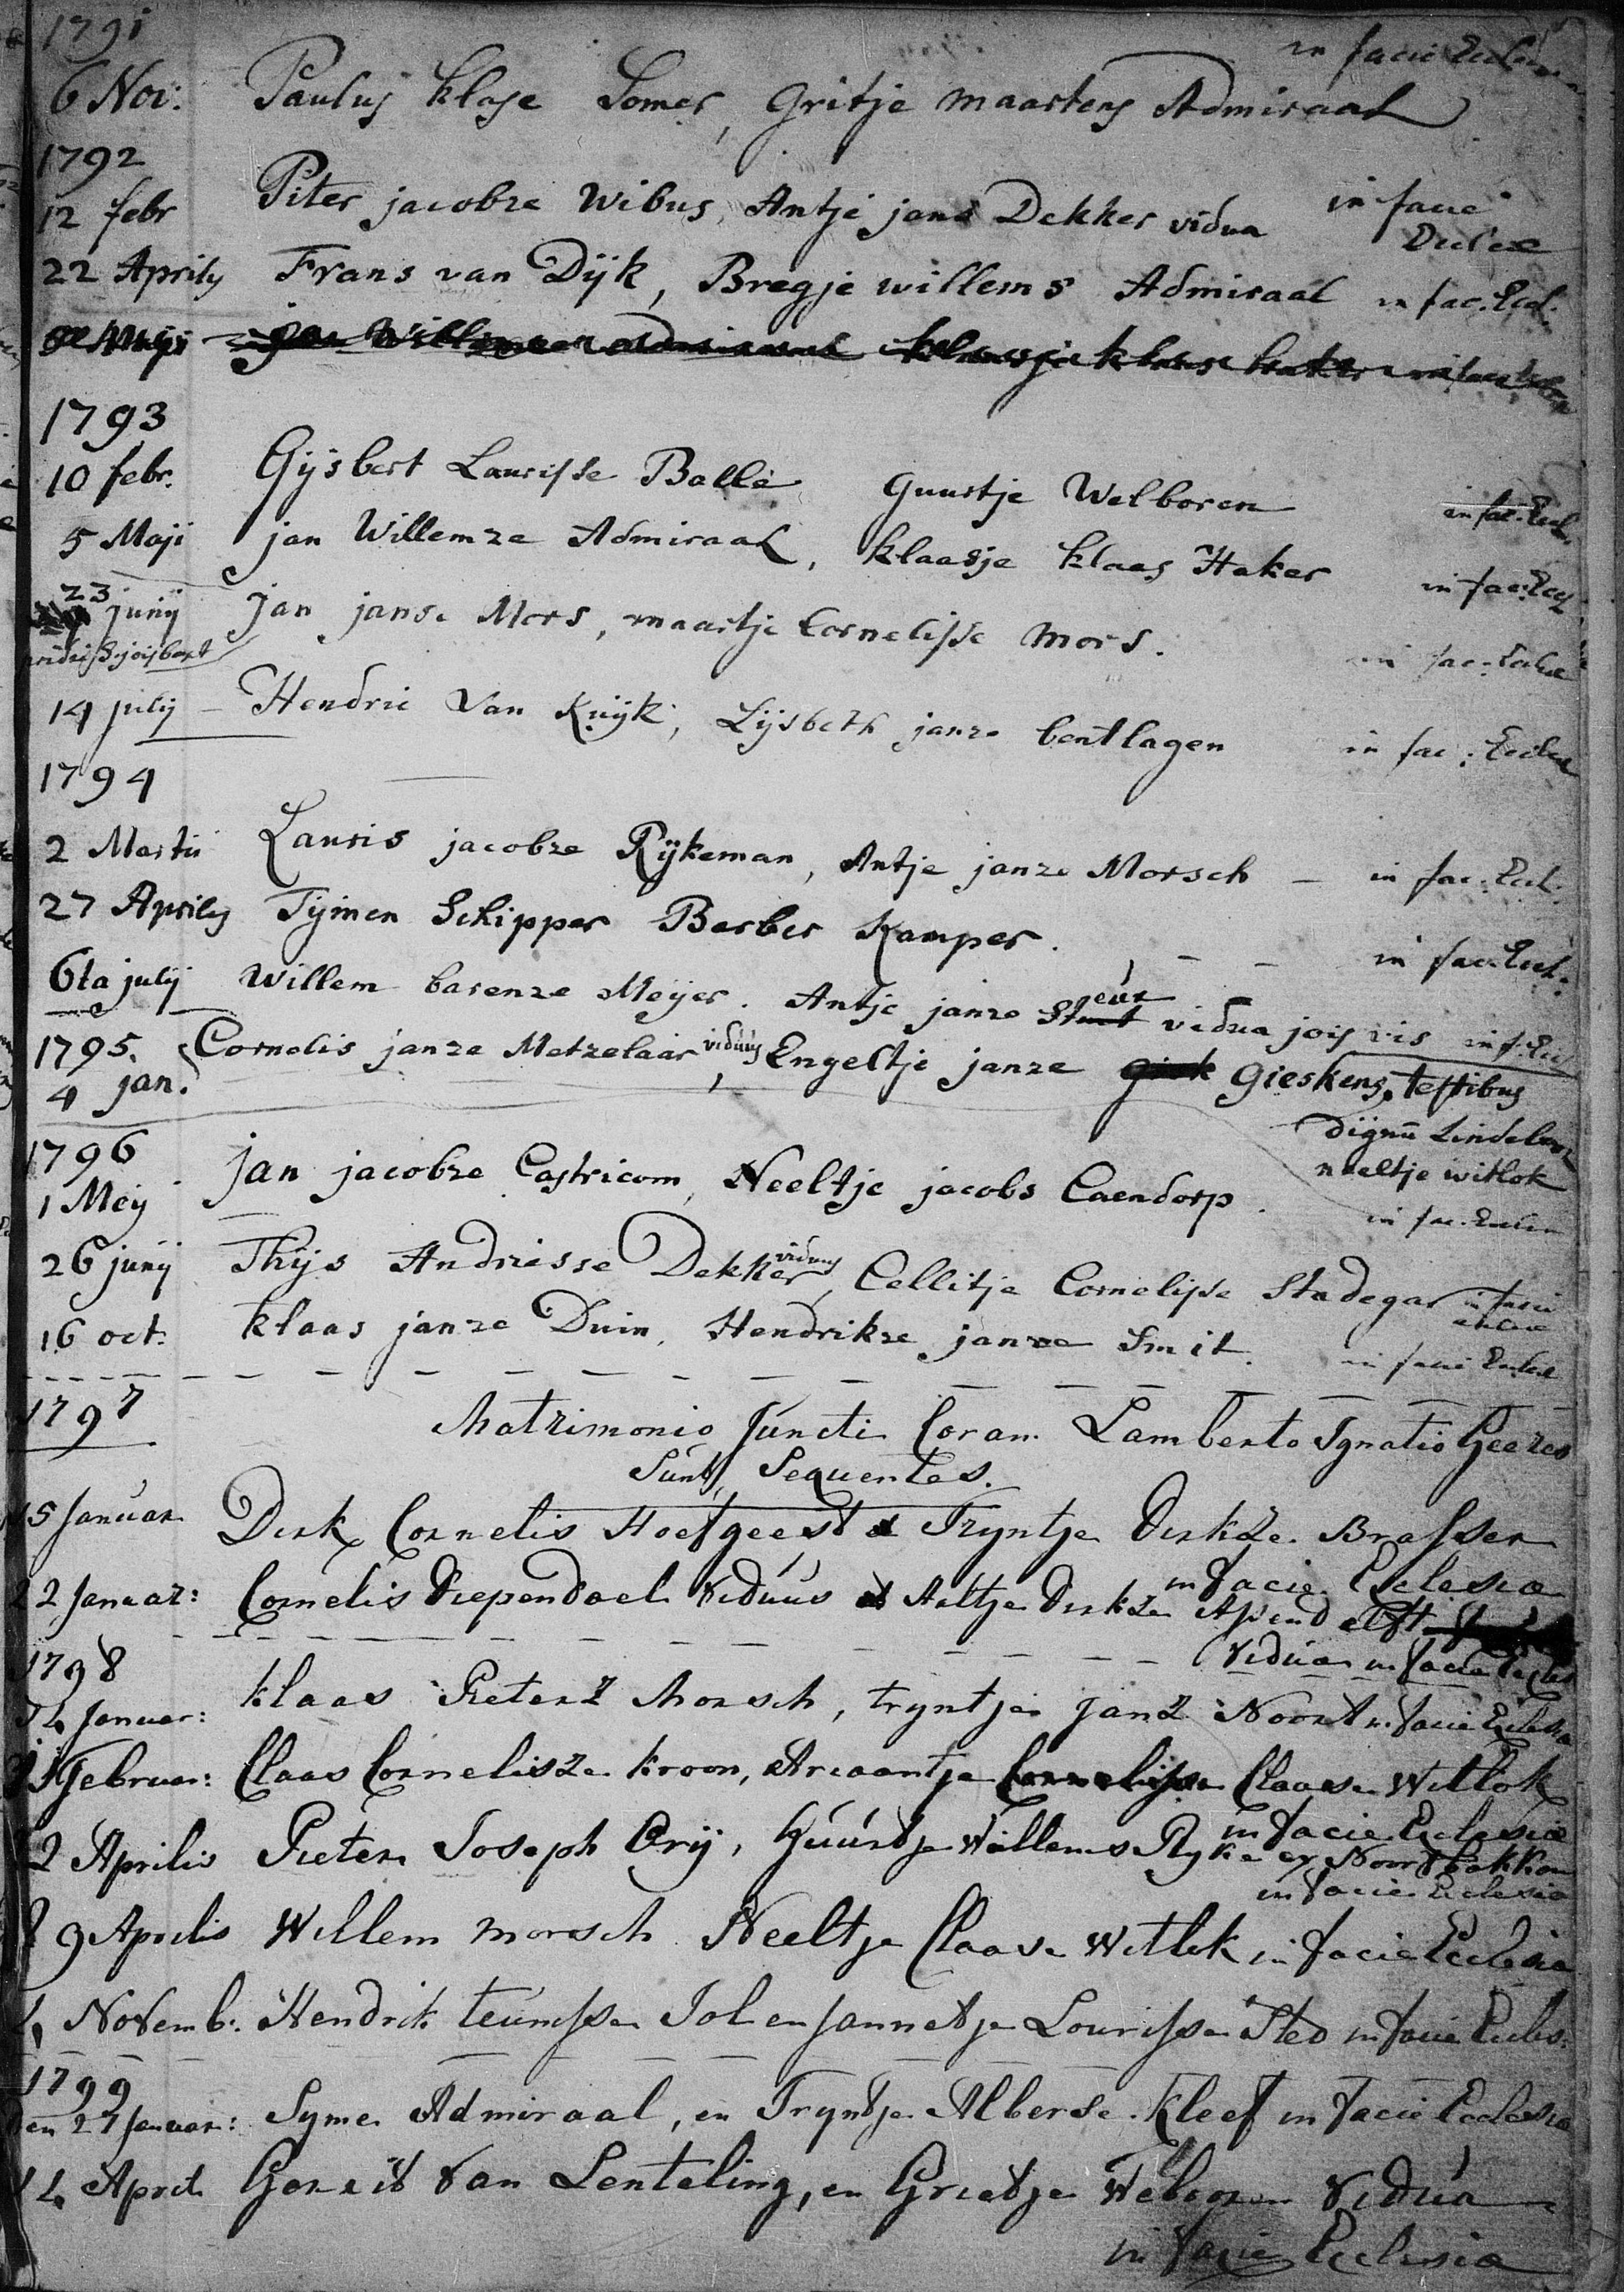 1791
in facie Eccles
6 Nov: Paulus klase Somer, Gritje maartens Admiraal
1792
12 febr Piter jacobze Wibus, Antje jans Dekker vidua in facie
Eccles
22 Aprilis Frans van Dijk, Bregje willems Admiraal in fac. Eccl.
jan Willemze Admiraal klaasje klaas haker
1793
10 febr. Gijsbert Laurisse Balle Guurtje Welboren in fac. Eccl.
5 Maji jan Willemze Admiraal, klaasje klaas Haker in fac. Eccl
23 junij jan janse Mors, maartje Cornelisse Mors. in fac. Eccles
14 julij – Hendric van Kuijk, Lijsbeth janze bentlagen in fac. Eccles
1794
2 Martii Lauris jacobze Rijkeman, Antje janze Morsch – in fac. Eccl.
27 Aprilis Tijmen Schipper Barber Kamper. – – in fac. Eccl.
6ta julij Willem barenze Meijer. Antje janze vidua jois vis in f. Eccl
1795. Cornelis janze Metzelaar viduus, Engeltje janze Gieskens, testibus
4 jan.
neeltje witlok
1796
1 Meij jan jacobze Castricom, Neeltje jacobs Caendorp. in fac. Eccles
26 junij Thijs Andriesse Dekker viduus, Cellitje Cornelisse Stadegar in facie
16 oct: klaas janze Duin, Hendrikze janze Smit. in facie Eccles
1797
Matrimonio Juncti Coram Lamberto Ignatio Geerts
Sunt Sequentes.
15 Januar Dirk Cornelis Hoefgeest et Tryntje Dirkze Brasser
in facie Eclesia
22 Januar: Cornelis Diependael viduus et Aeltje Dirkze Assendelft
vidua in facie Eccles
1798
14 Januar: klaas Pieterz Morsch, tryntje Janz Noort in facie Eclesia
Februar: Claas Cornelisze kroon, Ariaantje Cornelisse Claase Witlok
in facie Eclesia
22 Aprilis Pieter Joseph Orij, Guurtje Willems Ryke ex Noortbakkum
in facie Eclesia
29 Aprilis Willem Morsch Neeltje Claase Witlok in facie Ecclesia
4 Novemb: Hendrik teunisse Jol en Jannetje Lourisse Sted in facie Eccles:
1799
den 27 Januar: Syme Admiraal, en Tryntje Alberse Kleef in facie Ecclesia
14 April Gerrit van Lenteling, en Grietje Weboren vidua
in facie Eclesia